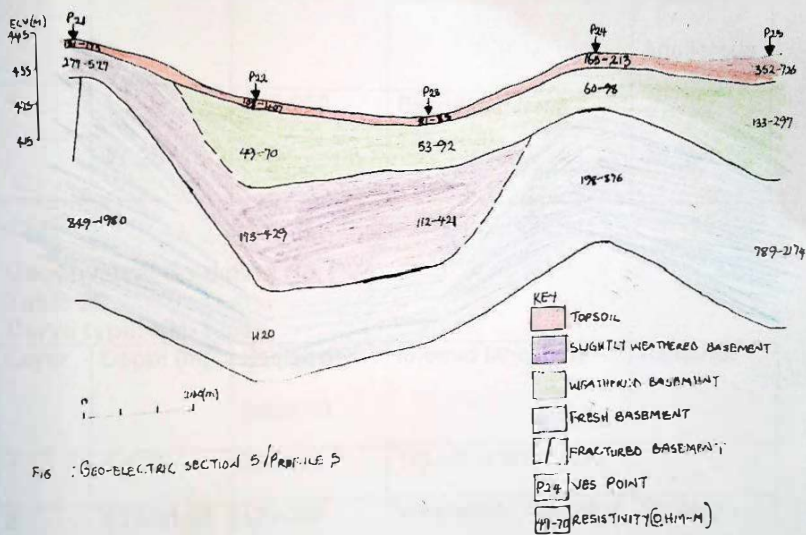 ELV(M)
445
435
425
415
P21
P22
P23
P24
P25
277-577
165-213
352-726
60-98
133-297
49-70
53-92
849-1980
193-429
112-421
198-376
789-2174
1120
0
200(m)
FIG : GEO-ELECTRIC SECTION 5/PROFILE 5
KEY
TOPSOIL
SLIGHTLY WEATHERED BASEMENT
WEATHERED BASEMENT
FRESH BASEMENT
FRACTURED BASEMENT
P24 VES POINT
49-70 RESISTIVITY(OHM-M)